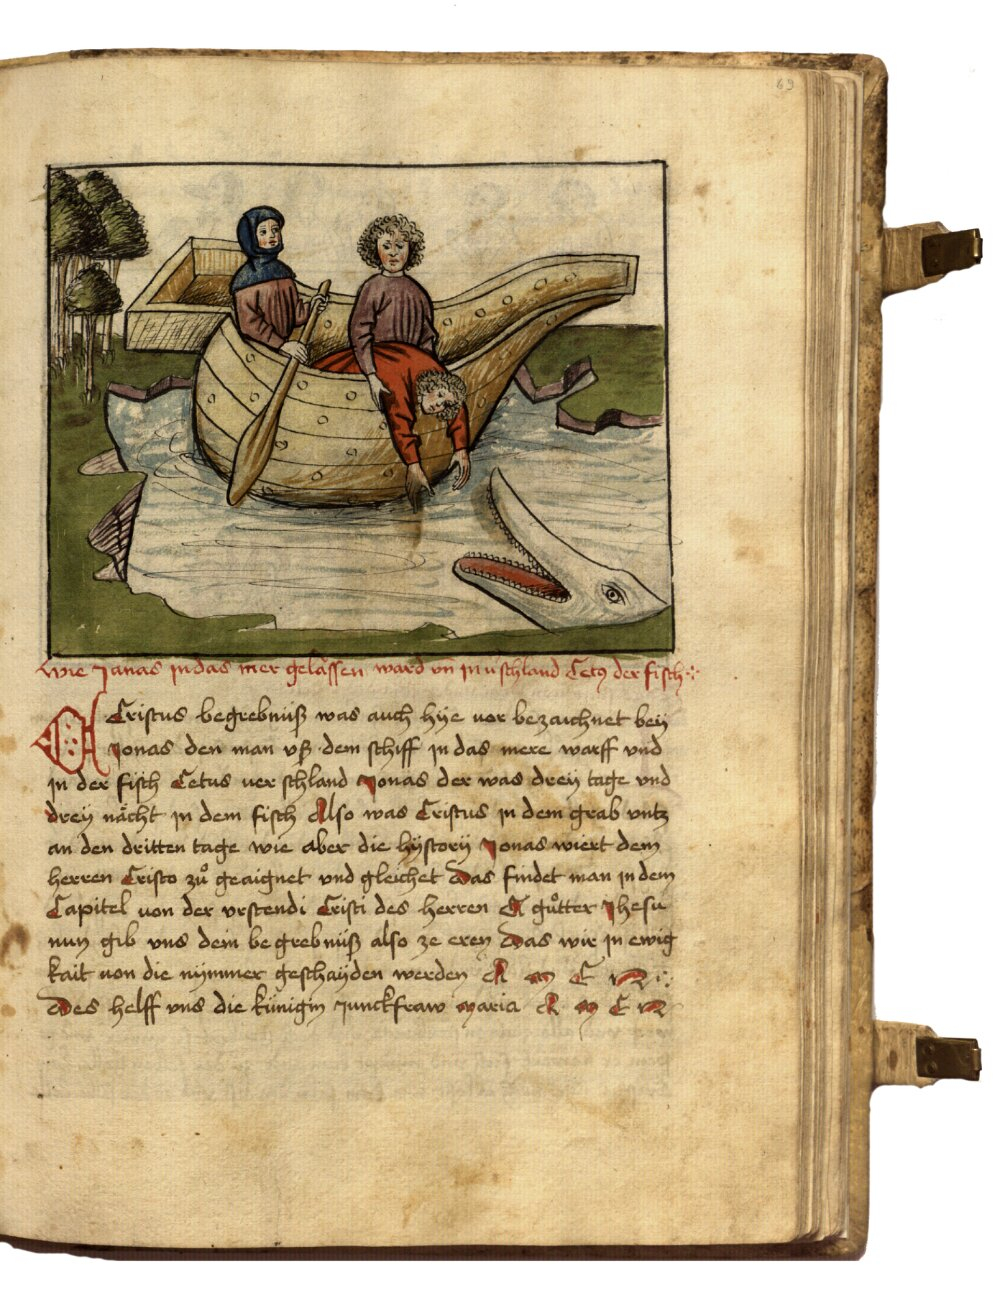 69
Wie Jonas in das mer gelässen ward vn̄ in v̓schland Cetꝰ der fisch
Cristus begrebnüß was auch hye vor bezaichnet beÿ
Jonas den man vß dem schiff in das mere warff vnd
in der fisch Cetus ver schland Jonas der was dreÿ tage vnd
dreÿ nächt in dem fisch Also was Cristus in dem grab vntz
an den dritten tage wie aber die hÿstorÿ Jonas wiert dem
herren Cristo zů geaignet vnd gleichet Das findet man in dem
Capitel von der vrstendi Cristi des herren O gůtter Jhesu
nun gib vns dein be grebnüß also ze eren Das wir in ewig
kait von die nÿmmer geschaÿden werden A M E N
Des helff vns die künigin junckfraw maria A M E N